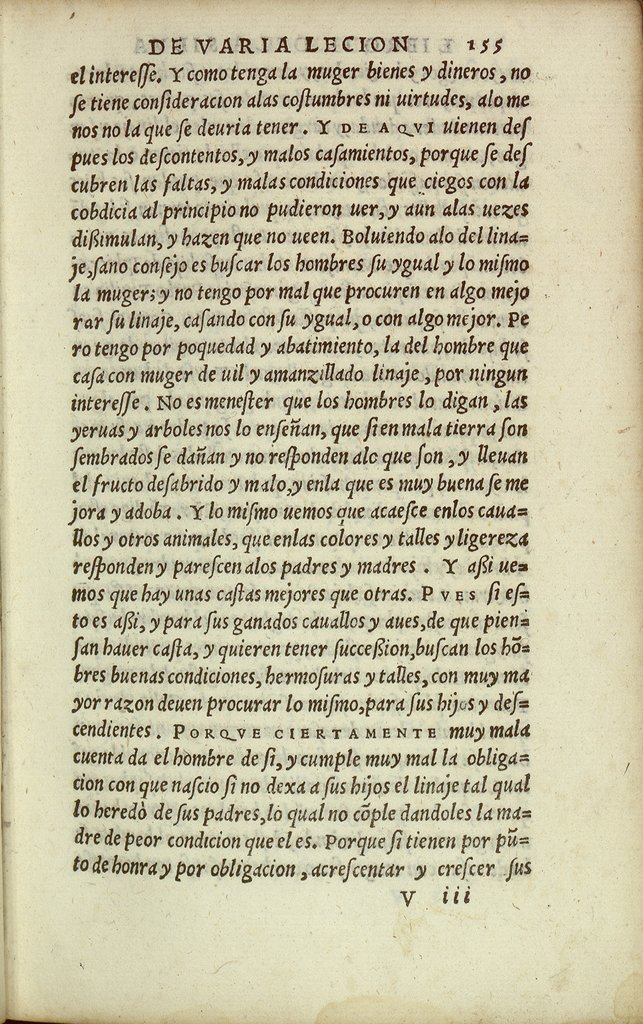 DE VARIA LECION 155
el interesse. Y como tenga la muger bienes y dineros, no
se tiene consideracion alas costumbres ni uirtudes, alo me
nos no la que se deuria tener. Y DE AQVI uienen des
pues los descontentos, y malos casamientos, porque se des
cubren las faltas, y malas condiciones que ciegos con la
cobdicia al principio no pudieron uer, y aun alas uezes
dißimulan, y hazen que no ueen. Boluiendo alo del lina=
je, sano consejo es buscar los hombres su ygual y lo mismo
la muger; y no tengo por mal que procuren en algo mejo
rar su linaje, casando con su ygual, o con algo mejor. Pe
ro tengo por poquedad y abatimiento, la del hombre que
casa con muger de uil y amanzillado linaje, por ningun
interesse. No es menester que los hombres lo digan, las
yeruas y arboles nos lo enseñan, que si en mala tierra son
sembrados se dañan y no responden alo que son, y lleuan
el fructo desabrido y malo, y enla que es muy buena se me
jora y adoba. Y lo mismo uemos que acaesce enlos caua=
llos y otros animales, que enlas colores y talles y ligereza
responden y parescen alos padres y madres. Y aßi ue=
mos que hay unas castas mejores que otras. PVES si es=
to es aßi, y para sus ganados cauallos y aues, de que pien=
san hauer casta, y quieren tener succeßion, buscan los hō=
bres buenas condiciones, hermosuras y talles, con muy ma
yor razon deuen procurar lo mismo, para sus hijos y des=
cendientes. PORQVE CIERTAMENTE muy mala
cuenta da el hombre de si, y cumple muy mal la obliga=
cion con que nascio si no dexa a sus hijos el linaje tal qual
lo heredò de sus padres, lo qual no cōple dandoles la ma=
dre de peor condicion que el es. Porque si tienen por pū=
to de honra y por obligacion, acrescentar y crescer sus
V iii